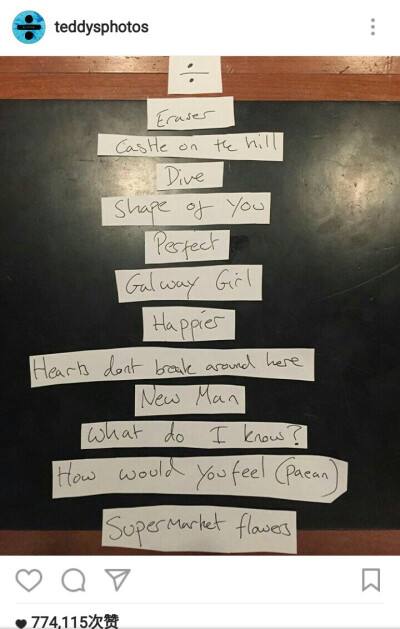 teddysphotos
÷
Eraser
Castle on the hill
Dive
Shape of You
Perfect
Galway Girl
Happier
Hearts dont break around here
New Man
What do I know?
How would you feel (paean)
Supermarket flowers
774,115次赞